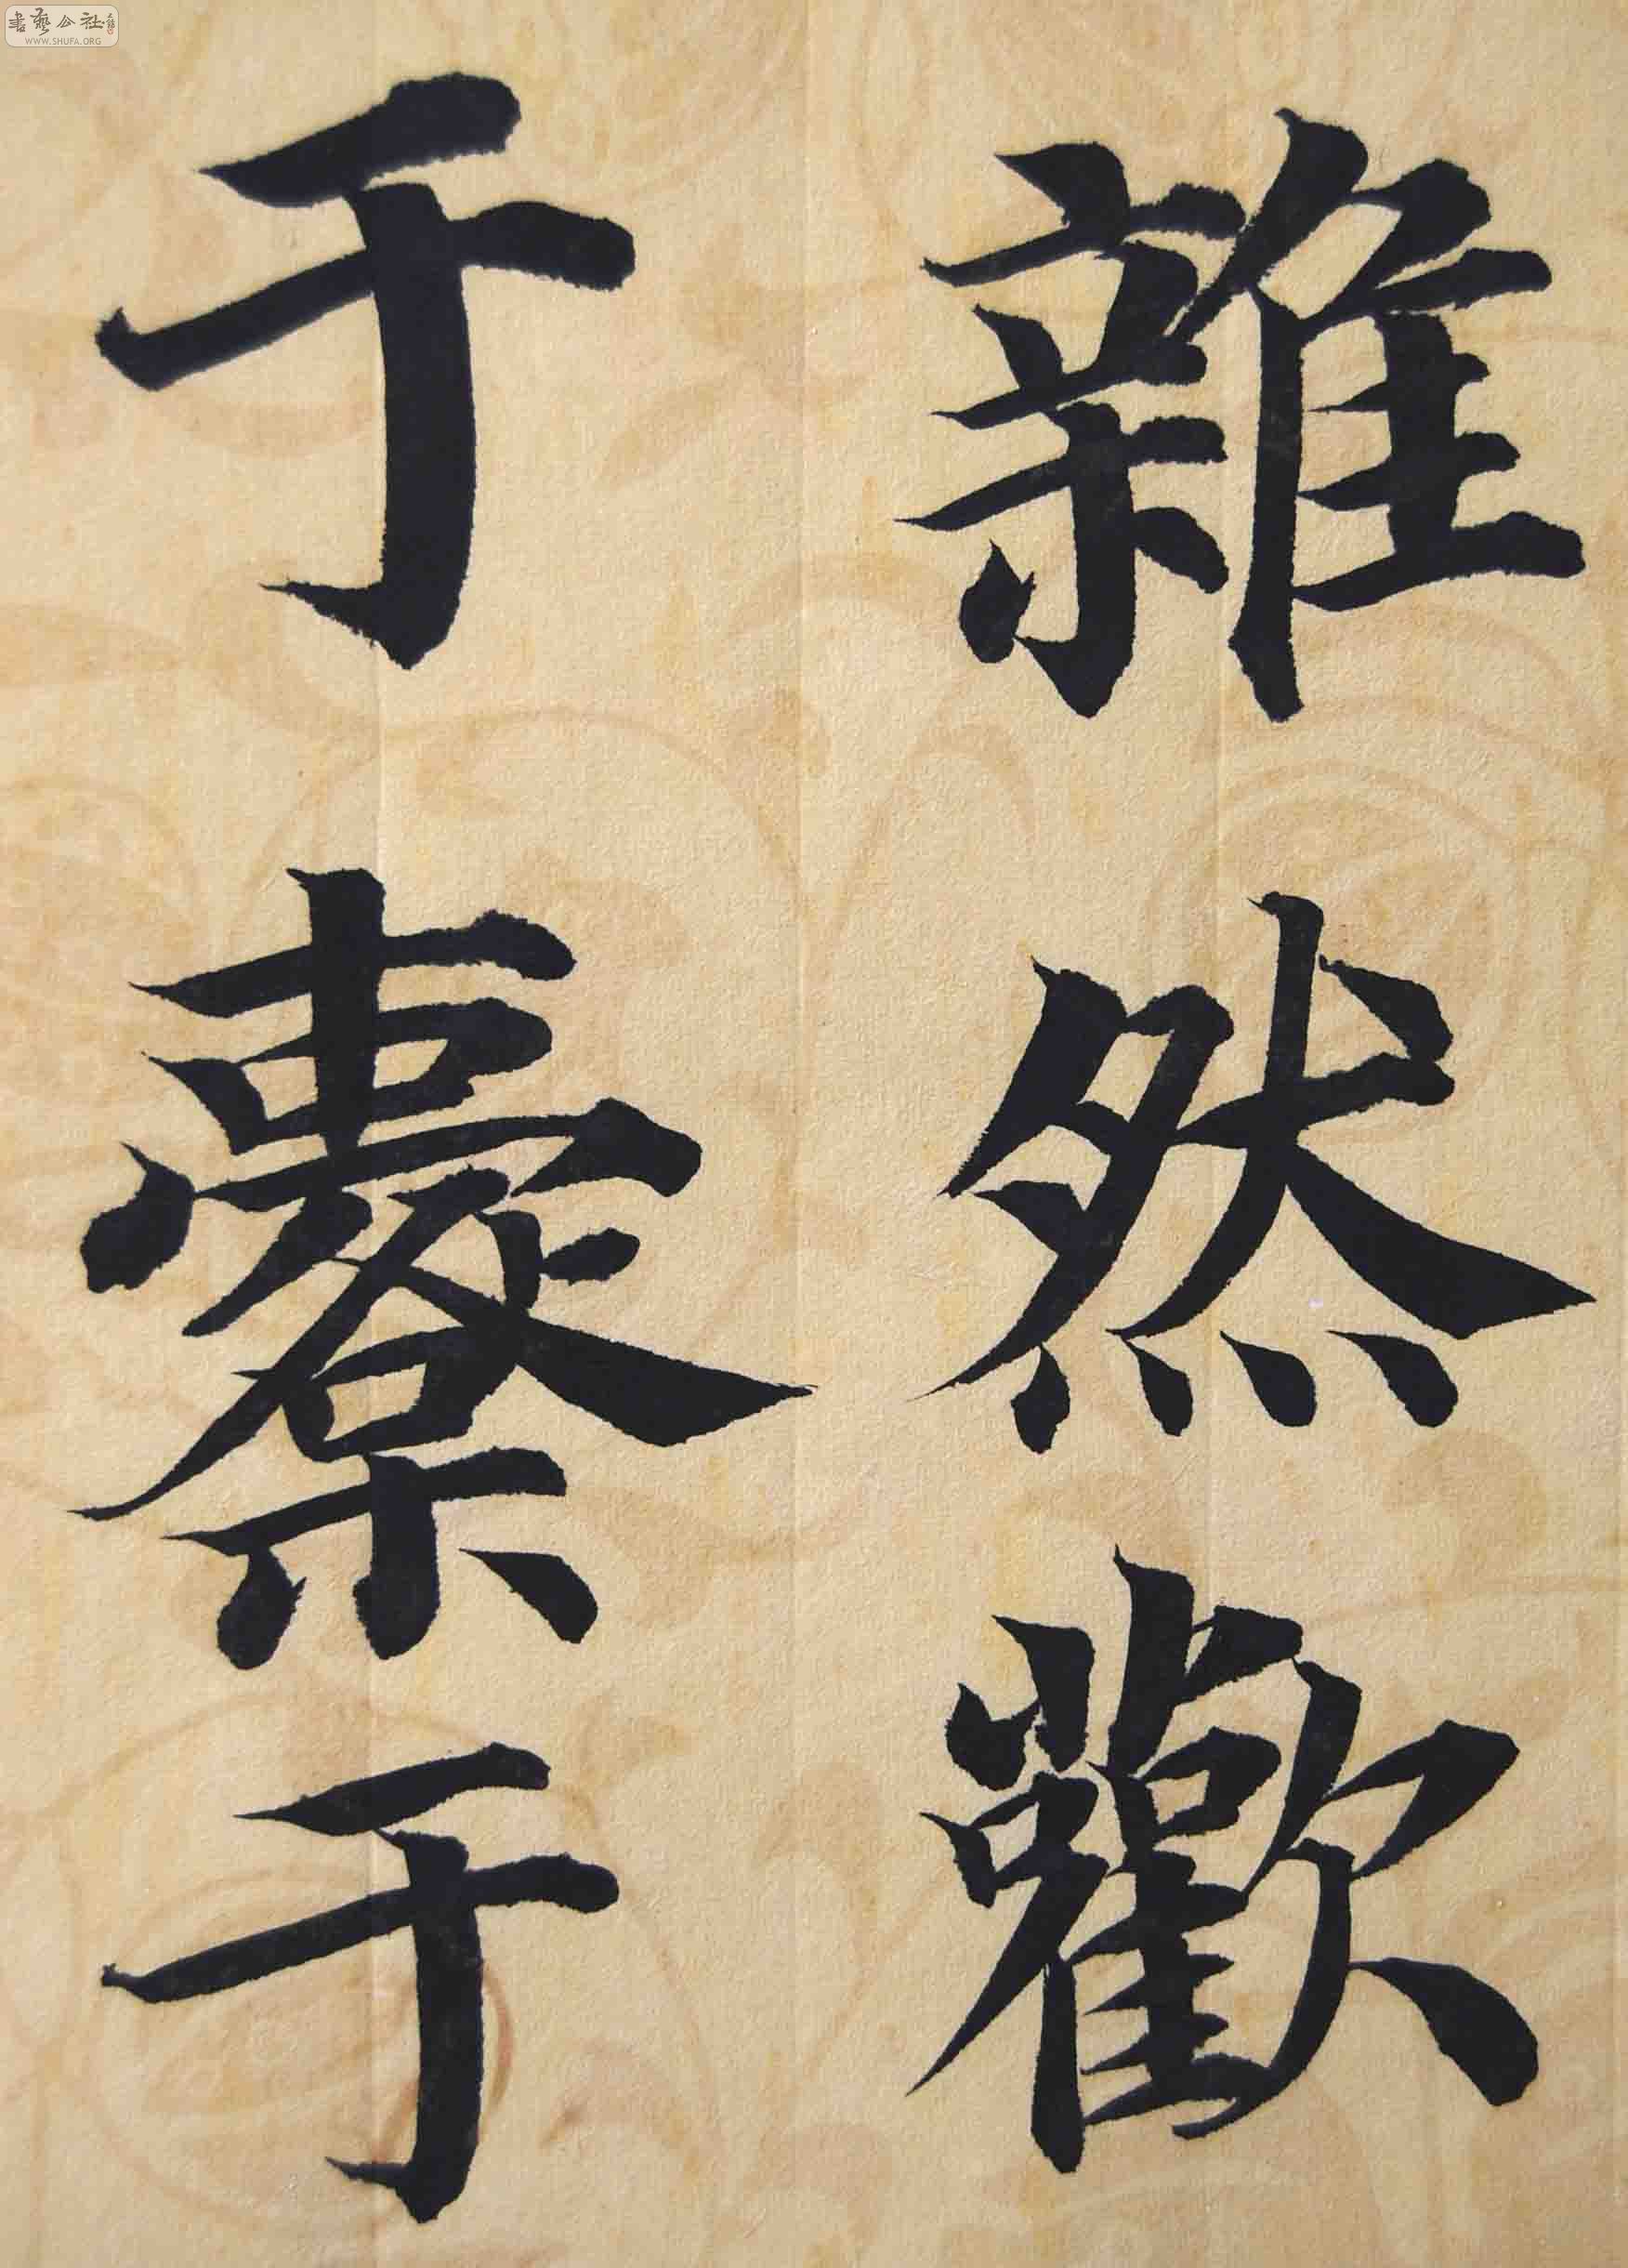 書藝公社
WWW.SHUFA.ORG
雜然歡
于櫜于